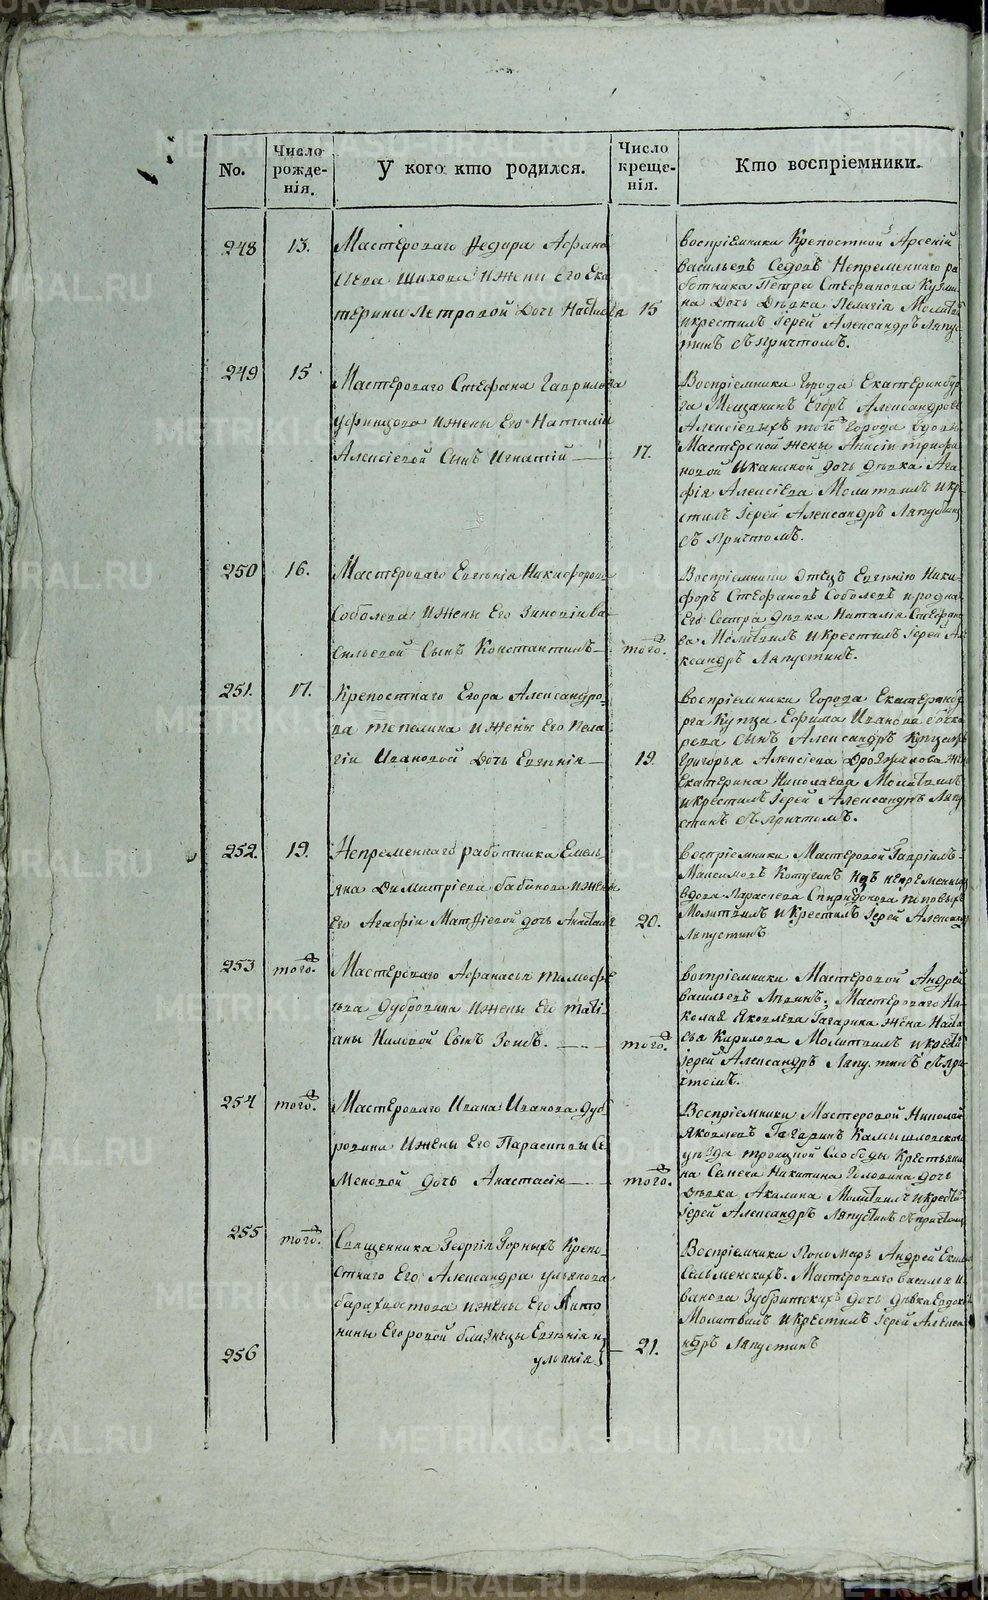 No.
Число рожде-нія.
У кого кто родился.
Число креще-нія.
Кто воспріемники.
248
13.
Мастероваго Федора Афана
сьева Шихова и жены его Ека
терины Петровой Дочь
15
воспріемники Крепостной Арсеній
васильевъ Седовъ Непременнаго ра
ботника Петра Стефанова Кузми
на Дочь Девка Пелагія Молитвилъ
и крестилъ Іерей Александръ Ляпус
тинъ Съ причтомъ.
249
15
Мастероваго Стефана Гаврилова
Уфинцова и жены Его Наталіи
Алексіевой Сынъ Игнатій
17.
Воспріемники Города Екатеринбур
га Мещанинъ Егоръ Александровъ
Алексіевыхъ того Города
Мастерской жены Анисіи Трифо
новой дочь дѣвка Ага
фія Алексіева Молитвилъ и кре
стилъ Іерей Александръ Ляпустинъ
Съ Причтомъ.
250
16.
Мастероваго Евгенія Никифорова
Соболева и жены Его Зиновіи Ва
сильевой Сынъ Константинъ
того.
Воспріемники Отецъ Евгенію Ники
форъ Стефановъ Соболевъ и родна
Его Сестра дѣвка Наталія Стефано
ва Молитвилъ и крестилъ Іерей Але
ксандръ Ляпустинъ.
251.
17.
Крепостнаго Егора Александро
ва Тепелина и жены Его Пела
гіи Ивановой Дочь Евгенія
19.
воспріемники Города Екатеринбу
рга Купца Ефима Иванова
Сынъ Александръ Купца
Григорья Алексіева Дрозжилова жена
Екатерина Николаева Молитвилъ
и крестилъ Іерей Александръ Ляпу
стинъ Съ причтомъ.
252.
19.
Непременнаго работника Емель
яна Димитріева бабинова и жены
Его Агафіи Матфіевой дочь
20.
воспріемники Мастеровой Гавріилъ
Максимовъ Котугинъ изъ непременныхъ
вдова Параскева Спиридонова
Молитвилъ и Крестилъ Іерей Александръ
Ляпустинъ
253
того.
Мастероваго Афанасья Тимофе
ева Дубровина и жены Его Таті
аны Ниловой Сынъ Зоилъ.
того.
воспріемники Мастеровой Андрей
васильевъ Мастероваго Ни
колая Яковлева Гагарина жена Наста
сья Кирилова Молитвилъ и крестилъ
Іерей Александръ Ляпустинъ Съ при
чтомъ.
254
того.
Мастероваго Ивана Иванова Дуб
ровина и жены Его Парасковьи Се
меновой дочь Анастасія
того.
Воспріемники Мастеровой Николай
Яковлевъ Гагаринъ Камышловскаго
уѣзда Троицкой Слободы Крестьяни
на Семена Никитина дочь
дѣвка Акилина Молитвилъ и крестилъ
Іерей Александръ Ляпустинъ Съ причтомъ
255
того.
Священника Георгія Горныхъ Крепо
стнаго Его Александра ульянова
барахвостова и жены Его Анто
нины Егоровой близнецы Евгенія и
256
ульянія
21.
Воспріемники Пономарь Андрей
Сельменскихъ. Мастероваго Василія И
ванова Зубритскихъ дочь дѣвка Евдокія
Молитвилъ и Крестилъ Іерей Алекса
ндръ Ляпустинъ
METRIKI.GASO-URAL.RU